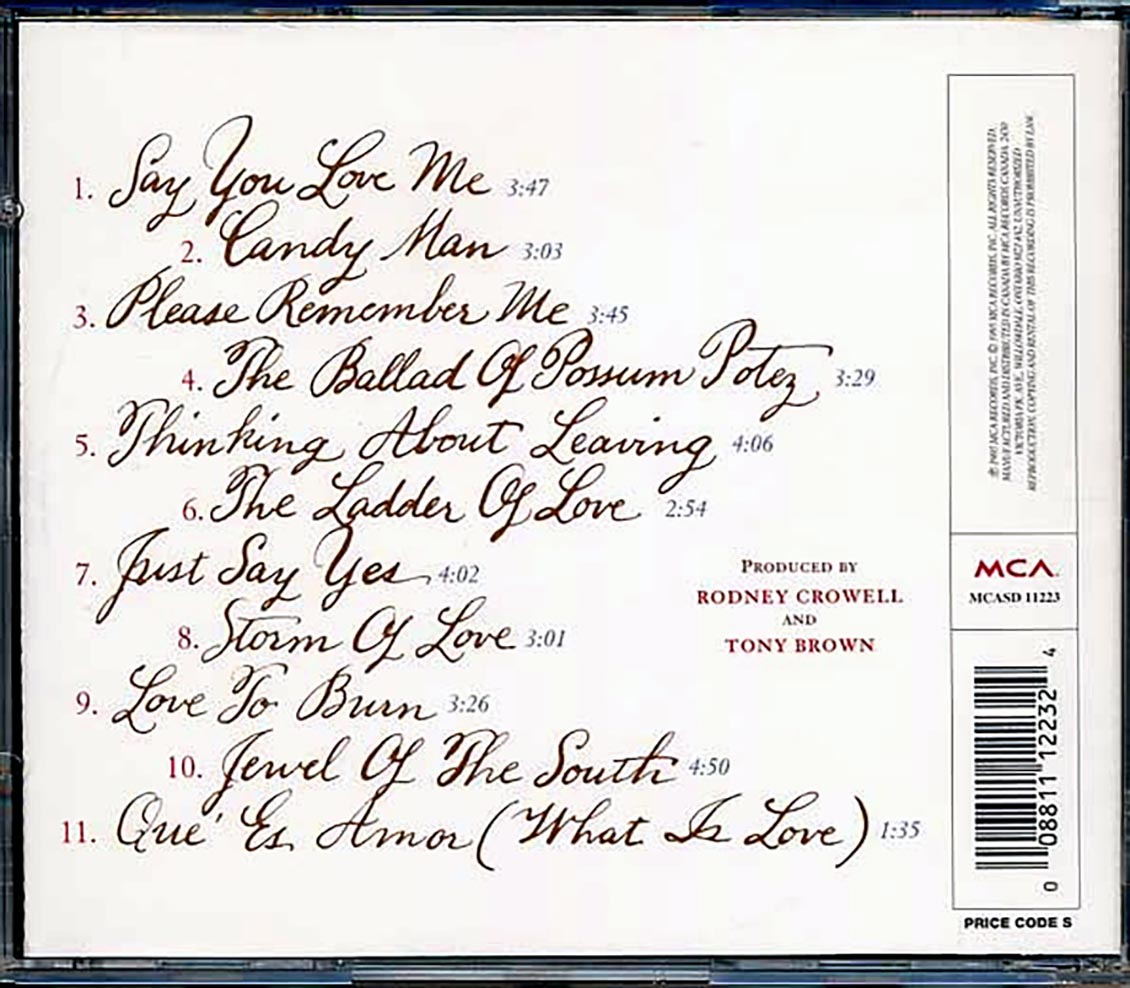 1. Say You Love Me 3:47
2. Candy Man 3:03
3. Please Remember Me 3:45
4. The Ballad Of Possum Potez 3:29
5. Thinking About Leaving 4:06
6. The Ladder Of Love 2:54
7. Just Say Yes 4:02
8. Storm Of Love 3:01
9. Love To Burn 3:26
10. Jewel Of The South 4:50
11. Qué Es Amor (What Is Love) 1:35
PRODUCED BY
RODNEY CROWELL
AND
TONY BROWN
℗ 1995 MCA RECORDS, INC. © 1995 MCA RECORDS, INC. ALL RIGHTS RESERVED.
MANUFACTURED AND DISTRIBUTED IN CANADA BY MCA RECORDS CANADA, 2450
VICTORIA PK. AVE., WILLOWDALE, ONTARIO M2J 4A2. UNAUTHORIZED
REPRODUCTION, COPYING AND RENTAL OF THIS RECORDING IS PROHIBITED BY LAW.
MCA
MCASD 11223
0 08811 12232 4
PRICE CODE S